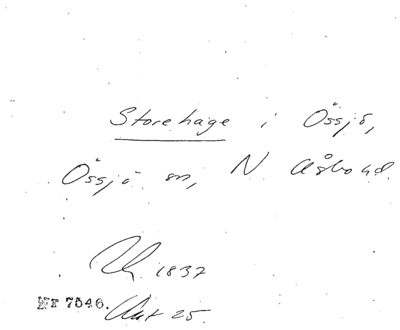 Storehage i Össjö,
Össjö sn, N Åsbo hd.
1837
NF 7546. Akt 25.